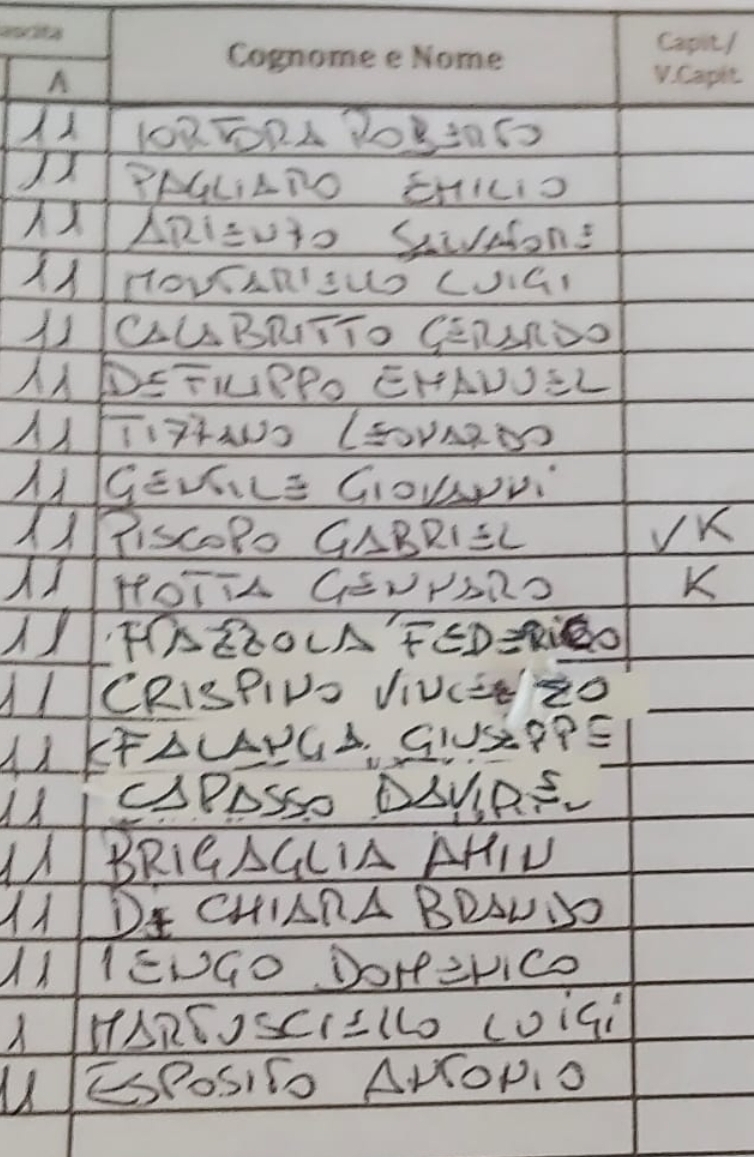 Cognome e Nome Capit./
A V.Capit.
11 TORTORA ROBERTO
11 PAGLIARO EMILIO
11 ARIENZO SALVATORE
11 MONTARIELLO LUIGI
11 CALABRITTO GERARDO
11 DE FILIPPO EMANUEL
11 TIZZANO LEONARDO
11 GENTILE GIOVANNI
11 PISCOPO GABRIEL VK
11 MOTTA GENNARO K
11 MAZZOLA FEDERICO
11 CRISPINO VINCENZO
11 FALANGA GIUSEPPE
11 CAPASSO DAVIDE
11 BRIGAGLIA AMIN
11 DE CHIARA BRANDO
11 IENGO DOMENICO
1 MARTUSCIELLO LUIGI
11 ESPOSITO ANTONIO